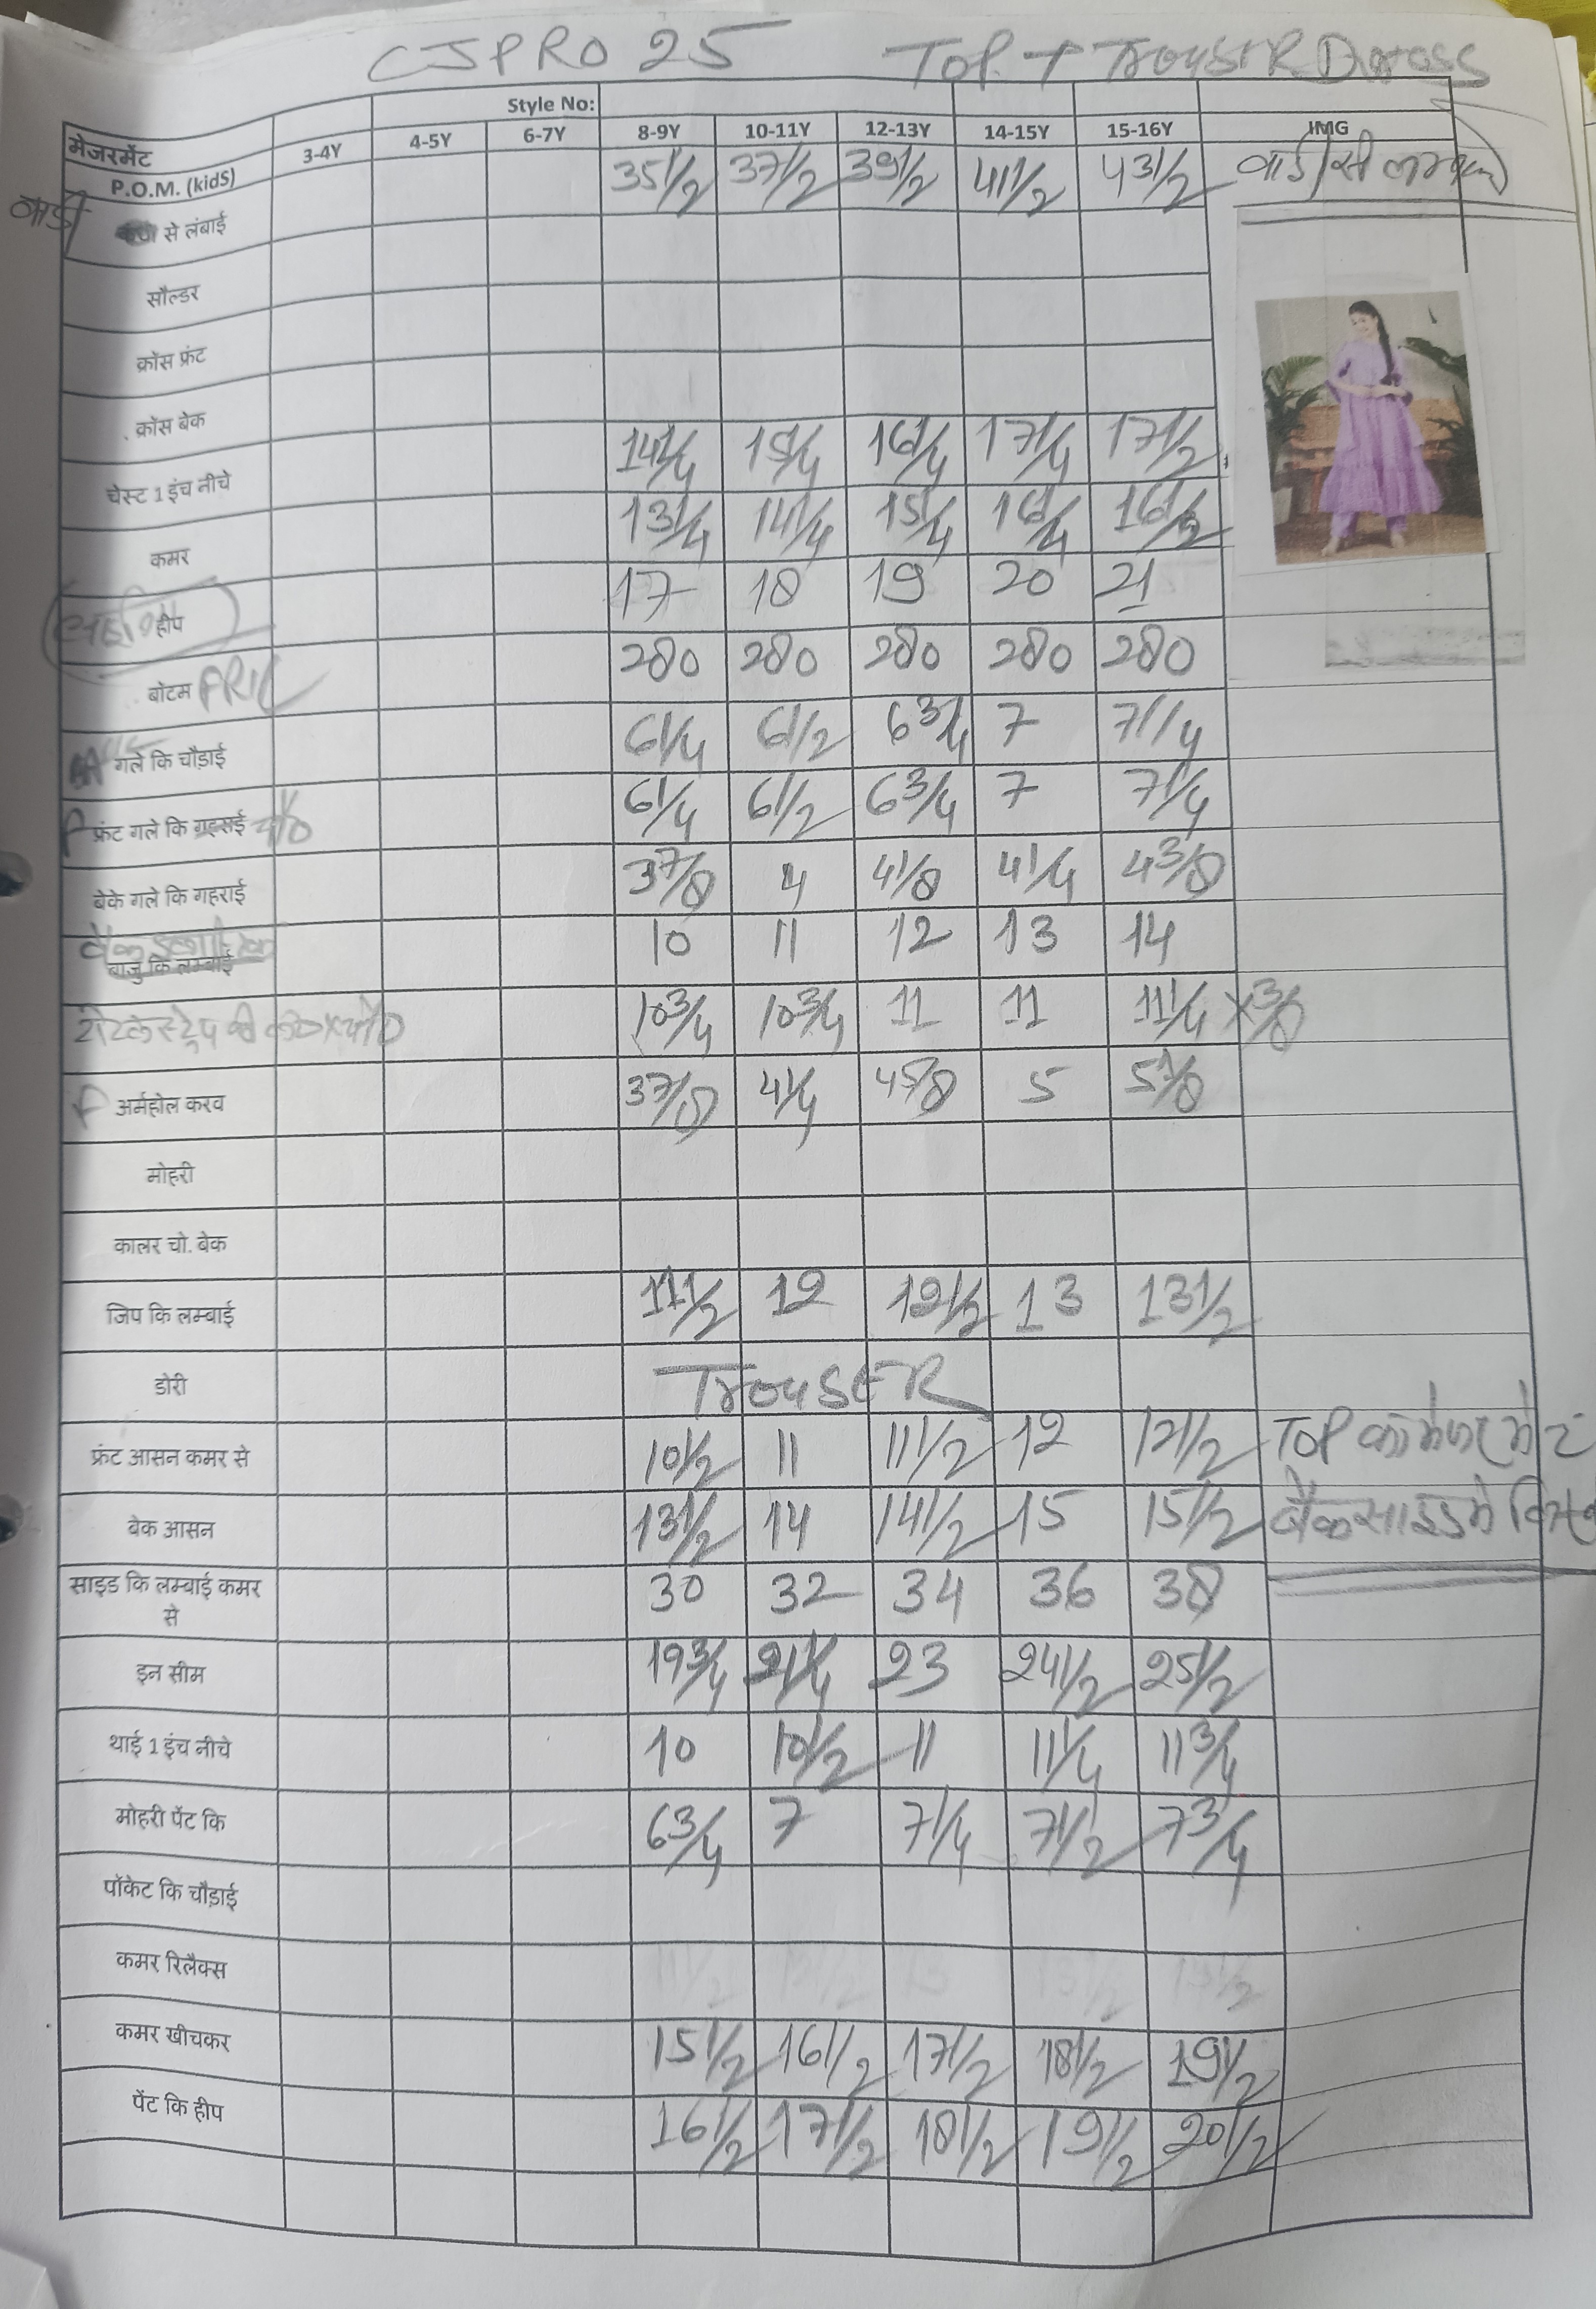 CJPRO 25 TOP + Trouser Dress
Style No:
मेजरमेंट 3-4Y 4-5Y 6-7Y 8-9Y 10-11Y 12-13Y 14-15Y 15-16Y IMG
P.O.M. (kidS)
बाडी से लंबाई 35 1/2 37 1/2 39 1/2 41 1/2 43 1/2 बाडी से लम्बाई
सौल्डर
क्रॉस फ्रंट
क्रॉस बेक
चेस्ट 1 इंच नीचे 14 1/4 15 1/4 16 1/4 17 1/4 17 1/2
कमर 13 1/4 14 1/4 15 1/4 16 1/4 16 1/2
हीप 17 18 19 20 21
बॉटम FRIL 280 280 280 280 280
गले कि चौड़ाई 6 1/4 6 1/2 6 3/4 7 7 1/4
फ्रंट गले कि 6 1/4 6 1/2 6 3/4 7 7 1/4
बेके गले कि गहराई 3 7/8 4 4 1/8 4 1/4 4 3/8
बाजु कि लम्बाई 10 11 12 13 14
10 3/4 10 3/4 11 11 11 1/4 x 3/8
F अर्महोल करव 3 7/8 4 1/4 4 5/8 5 5 1/8
मोहरी
कालर चो. बेक
जिप कि लम्बाई 11 1/2 12 12 1/2 13 13 1/2
डोरी TrousER
फ्रंट आसन कमर से 10 1/2 11 11 1/2 12 12 1/2 TOP का मेजरमेंट
बेक आसन 13 1/2 14 14 1/2 15 15 1/2 बैक साइड मे
साइड कि लम्बाई कमर 30 32 34 36 38
से
इन सीम 19 3/4 21 1/4 23 24 1/2 25 1/2
थाई 1 इंच नीचे 10 10 1/2 11 11 1/4 11 3/4
मोहरी पेंट कि 6 3/4 7 7 1/4 7 1/2 7 3/4
पॉकेट कि चौड़ाई
कमर रिलैक्स
कमर खीचकर 15 1/2 16 1/2 17 1/2 18 1/2 19 1/2
पेंट कि हीप 16 1/2 17 1/2 18 1/2 19 1/2 20 1/2